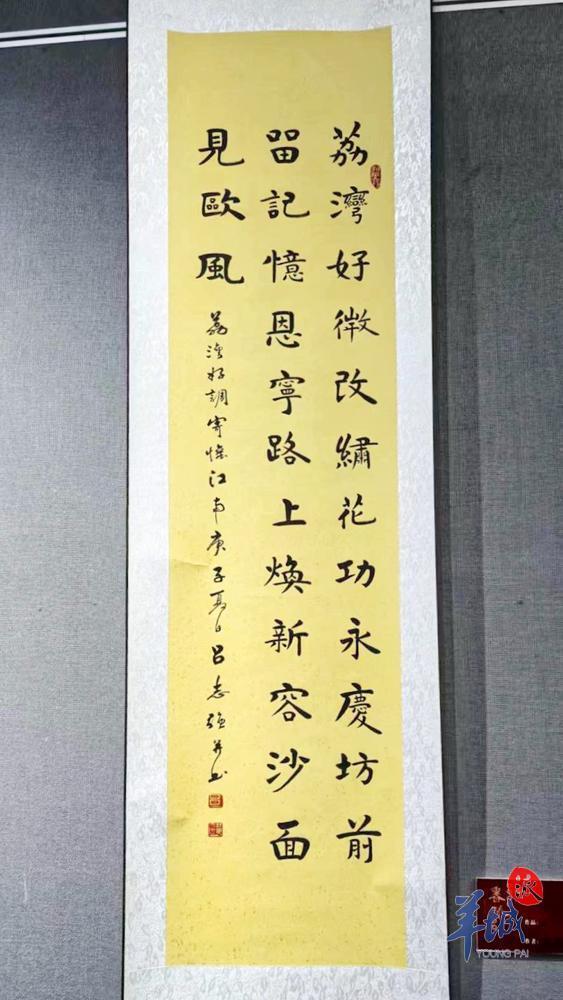 荔灣好微改繡花功永慶坊前
留記憶恩寧路上煥新容沙面
見歐風
荔灣好調寄憶江南庚子夏日呂志強并書
作品:
作者:
羊城派
YOUNG PAI